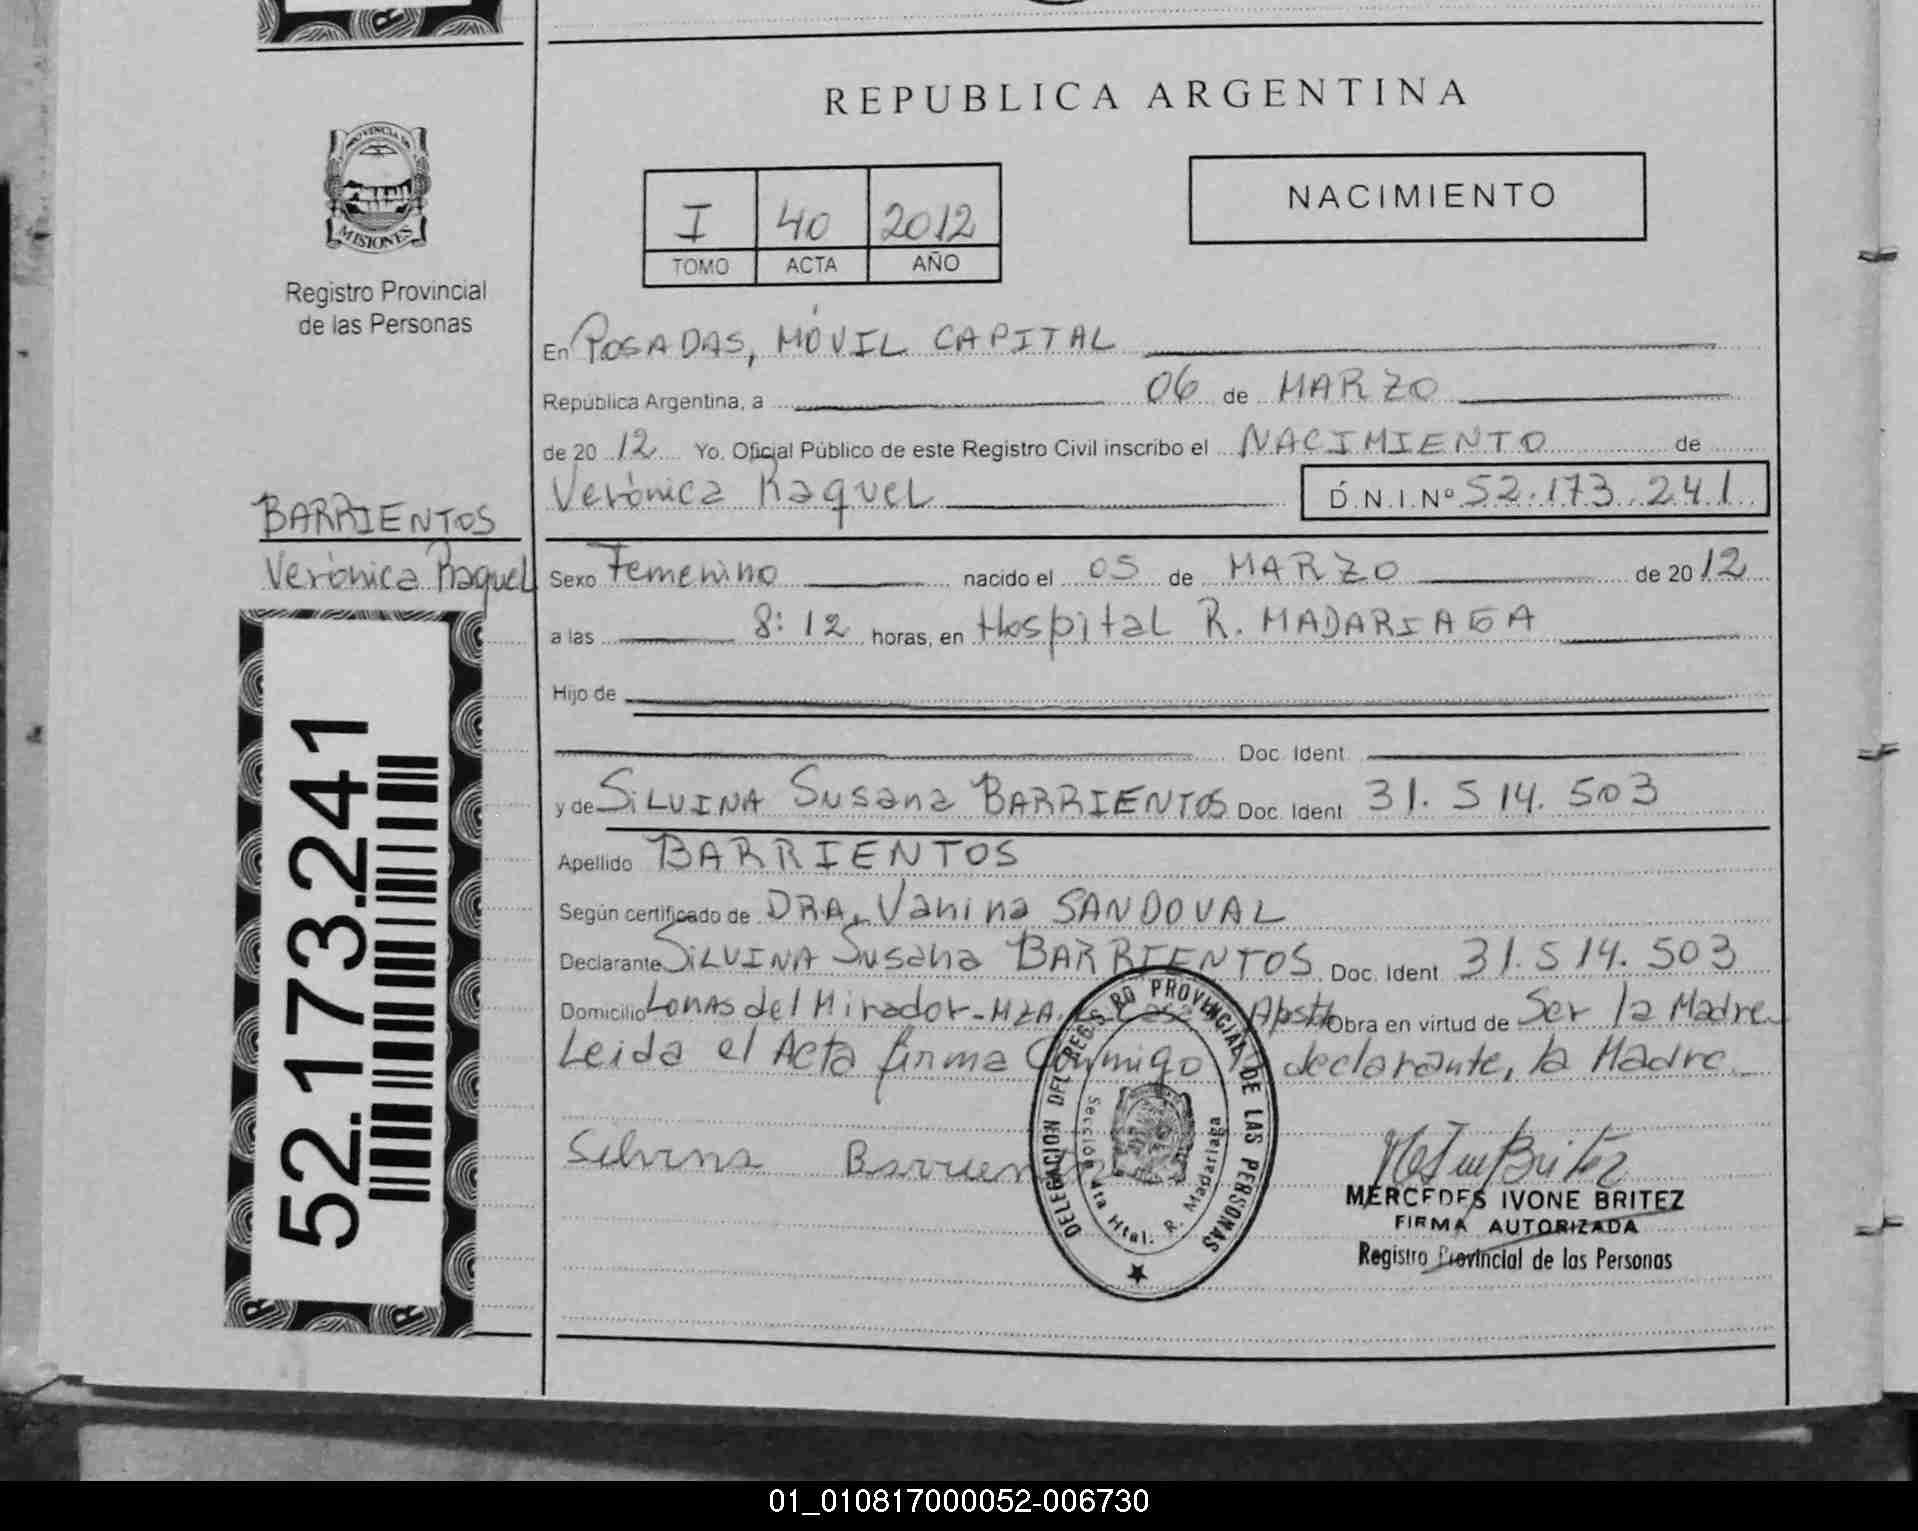 REPUBLICA ARGENTINA
NACIMIENTO
I 40 2012
TOMO ACTA AÑO
PROVINCIA DE
MISIONES
Registro Provincial
de las Personas
En POSADAS, MÓVIL CAPITAL
República Argentina, a 06 de MARZO
de 20 12 Yo, Oficial Público de este Registro Civil inscribo el NACIMIENTO de
Verónica Raquel D.N.I.Nº 52.173.241
BARRIENTOS
Verónica Raquel
Sexo Femenino nacido el 05 de MARZO de 20 12
a las 8:12 horas, en Hospital R. MADARIAGA
Hijo de
Doc. Ident.
y de SILVINA Susana BARRIENTOS Doc. Ident. 31.514.503
Apellido BARRIENTOS
Según certificado de DRA. Vanina SANDOVAL
Declarante SILVINA Susana BARRIENTOS Doc. Ident. 31.514.503
Domicilio Lomas del Mirador - Mza. Casa Apsth Obra en virtud de Ser la Madre
Leida el Acta firma Conmigo declarante, la Madre.
Silvina Barrientos
DELEGACION DEL REGISTRO PROVINCIAL DE LAS PERSONAS
Sección 4ta Htal. R. Madariaga
MERCEDES IVONE BRITEZ
FIRMA AUTORIZADA
Registro Provincial de las Personas
52.173.241
01_010817000052-006730